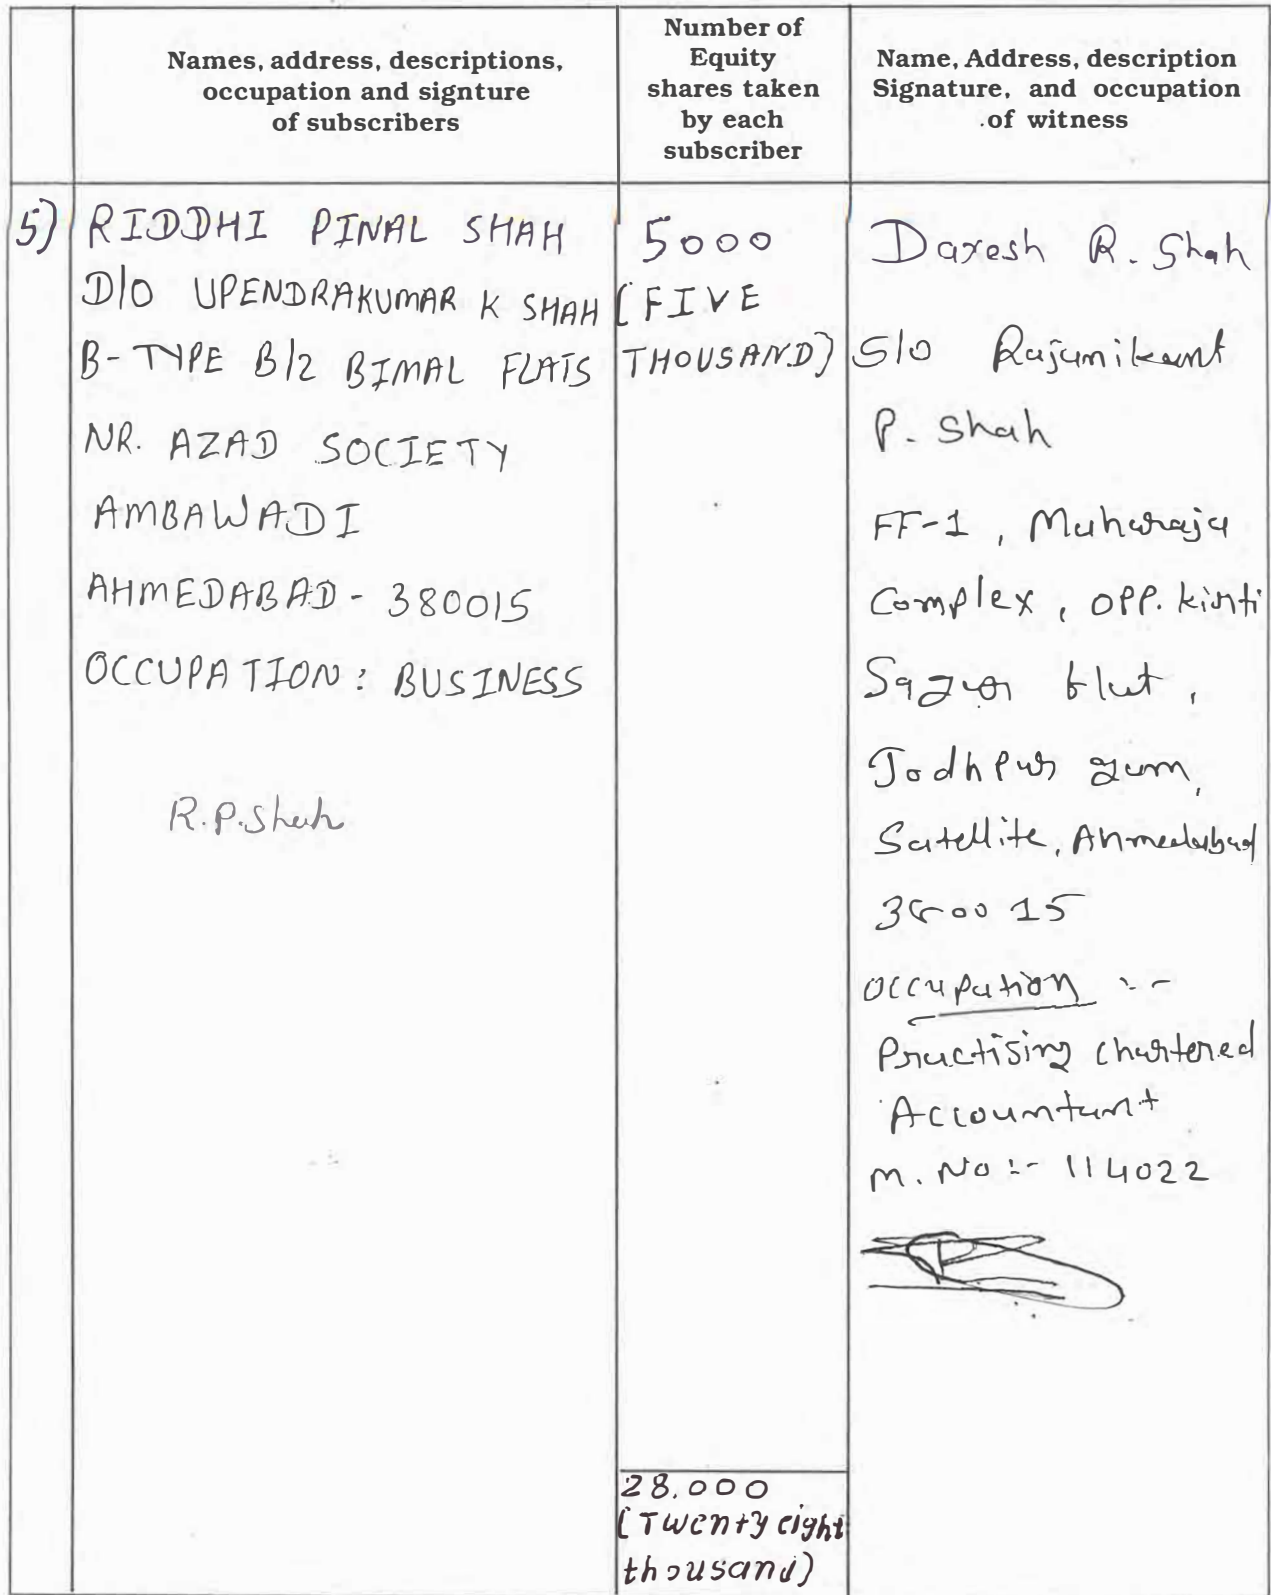 Names, address, descriptions,
occupation and signture
of subscribers
Number of
Equity
shares taken
by each
subscriber
Name, Address, description
Signature, and occupation
of witness
5) RIDDHI PINAL SHAH
D/O UPENDRAKUMAR K SHAH
B-TYPE B/2 BIMAL FLATS
NR. AZAD SOCIETY
AMBAWADI
AHMEDABAD - 380015
OCCUPATION: BUSINESS
R.P.Shah
5000
(FIVE
THOUSAND)
28,000
(Twenty eight
thousand)
Daxesh R. Shah
S/o Rajanikant
P. Shah
FF-1, Maharaja
Complex, opp. kirti
Sagar flat,
Jodhpur gam,
Satellite, Ahmedabad
380015
Occupation :-
Practising chartered
Accountant
M. No :- 114022